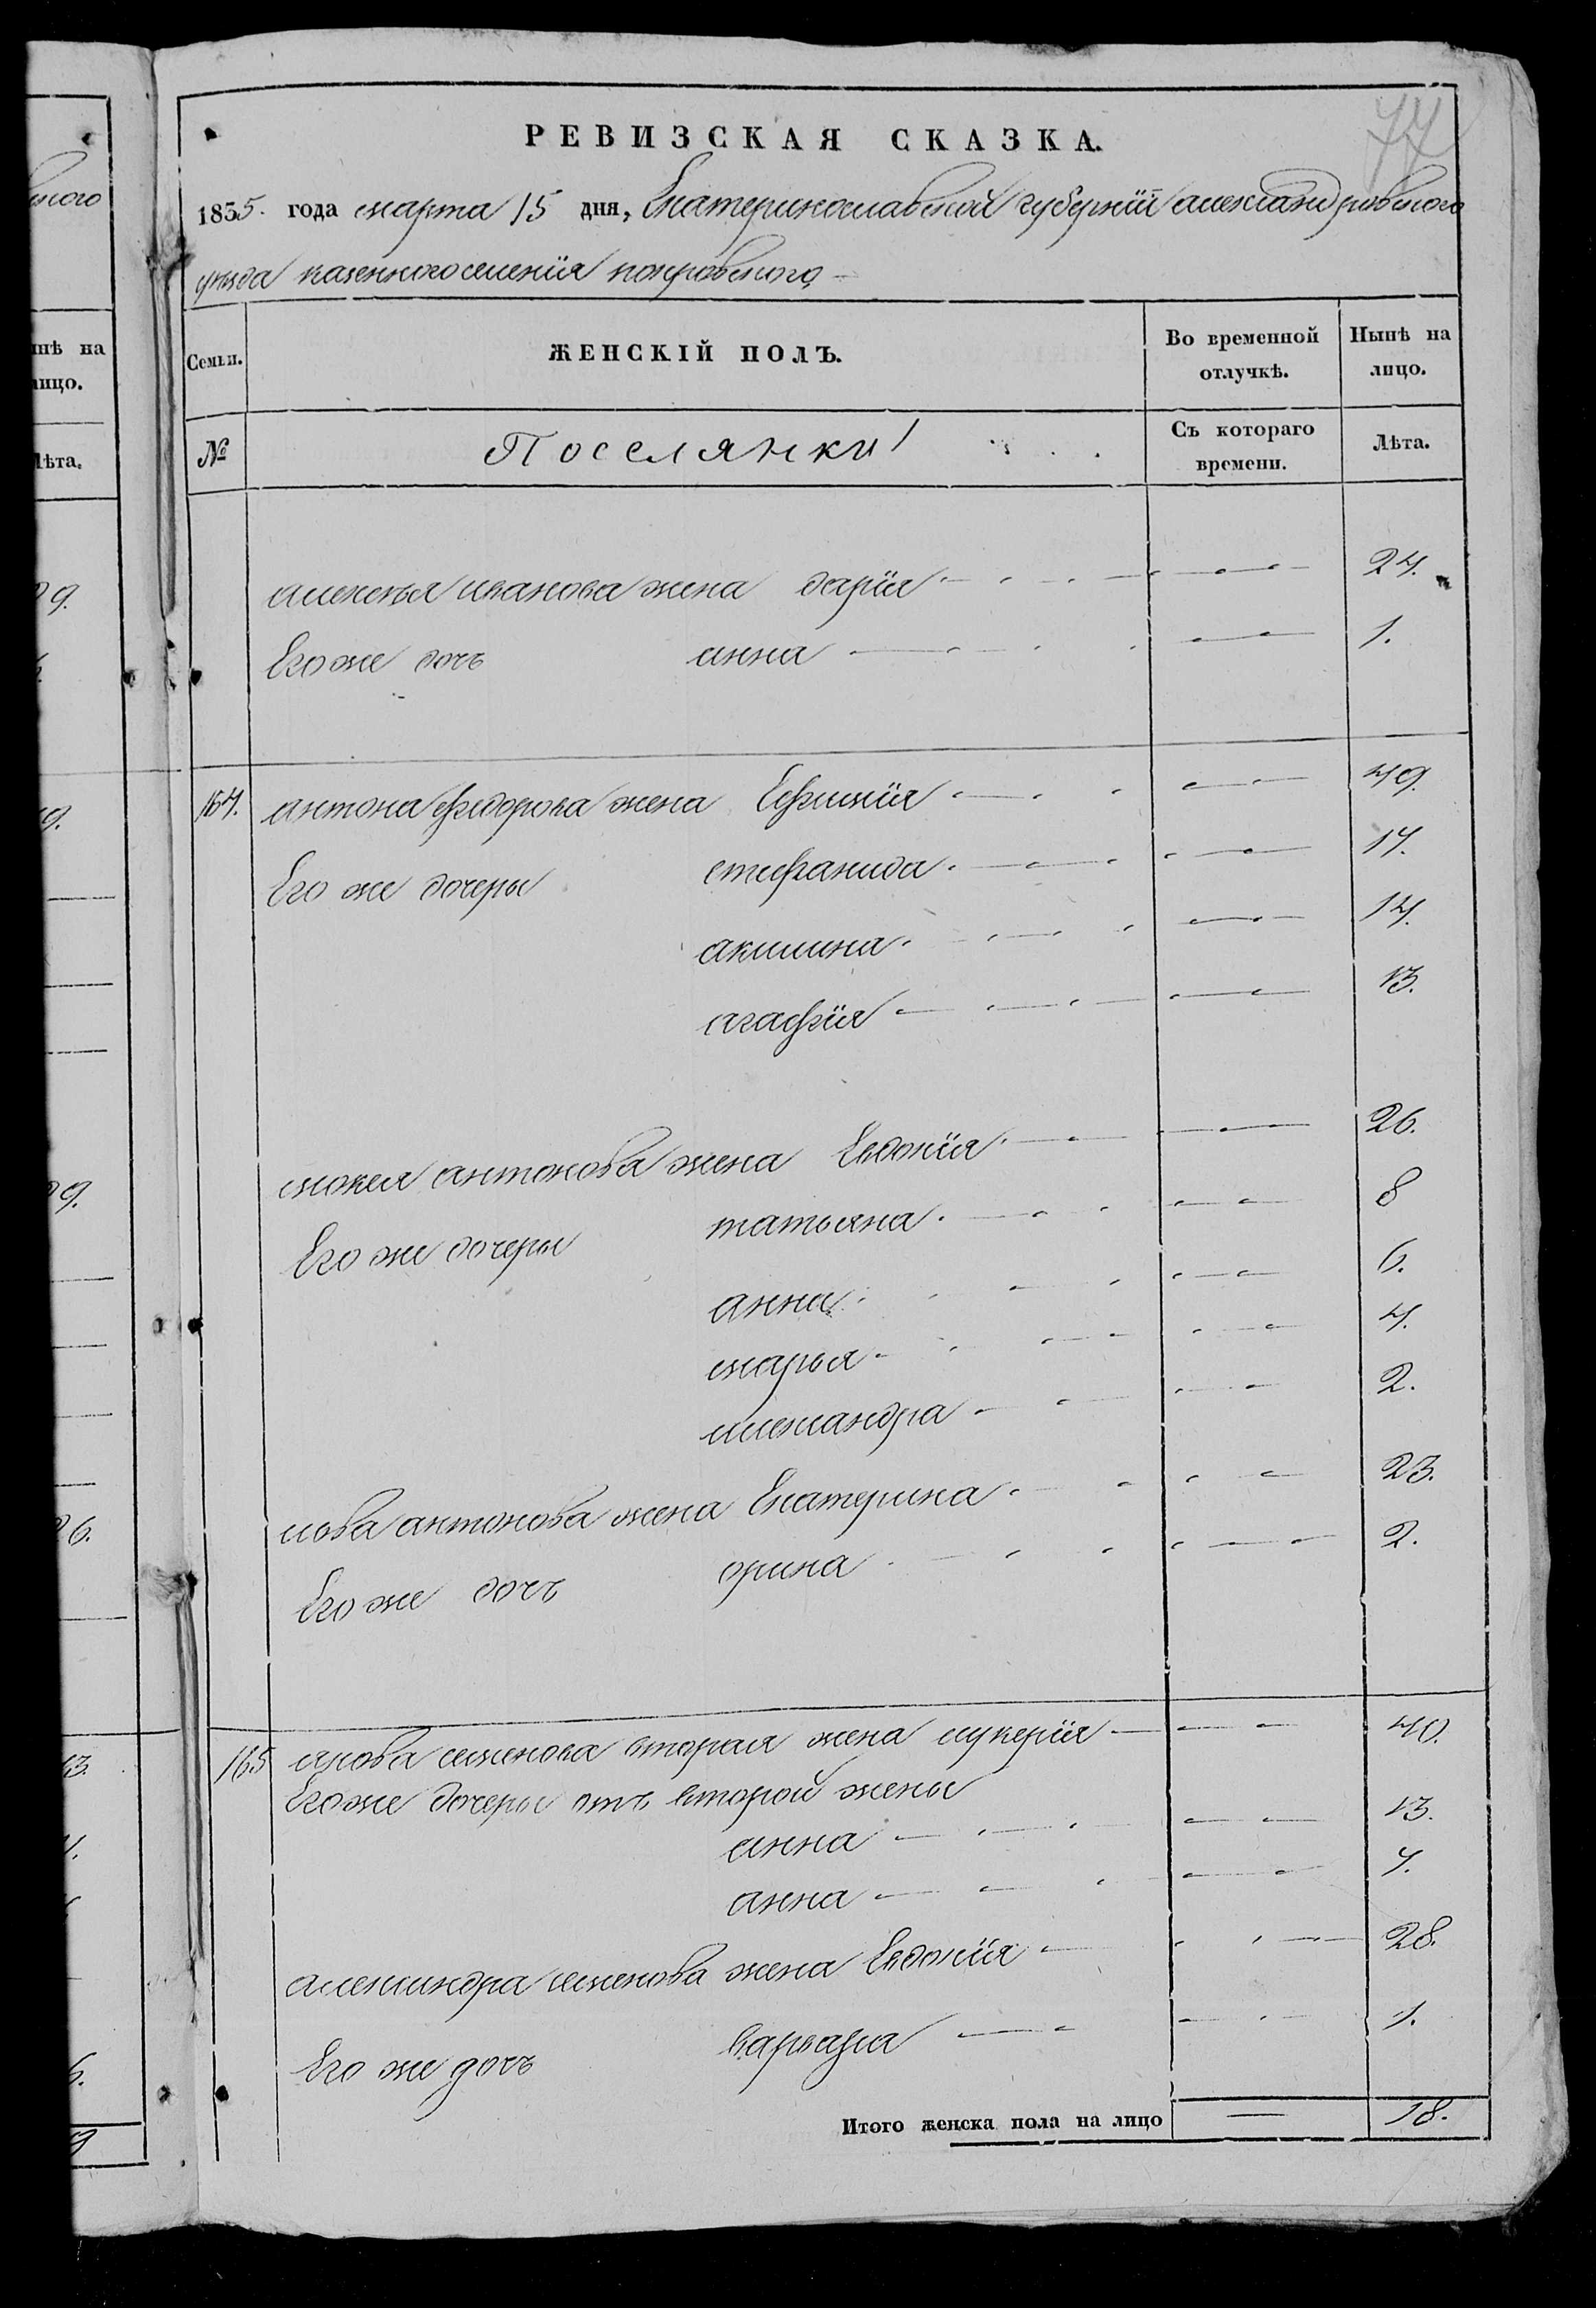 77
РЕВИЗСКАЯ СКАЗКА.
1835. года марта 15 дня, Екатеринославской губернїи александровского
уезда казенного селенїя покровского
Семьи.
ЖЕНСКІЙ ПОЛЪ.
Во временной отлучкѣ.
Нынѣ на лицо.
№
Поселянки
Съ котораго времени.
Лѣта.
алексея иванова жена дарїя 24.
Его же дочь анна 1.
164. антона федорова жена Ефимїя 49.
Его же дочеры стефанида 17.
акилина 14.
агафїя 13.
мокея антонова жена Евдокїя 26.
Его же дочеры татьяна 8
анна 6.
марья 4.
александра 2.
иова антонова жена Екатерина 23.
Его же дочь орина 2.
165 якова семенова вторая жена лукерїя 40.
Его же дочеры отъ второй жены
анна 13.
анна 7.
александра семенова жена Евдокїя 28.
Его же дочь варвара 1.
Итого женска пола на лицо 18.